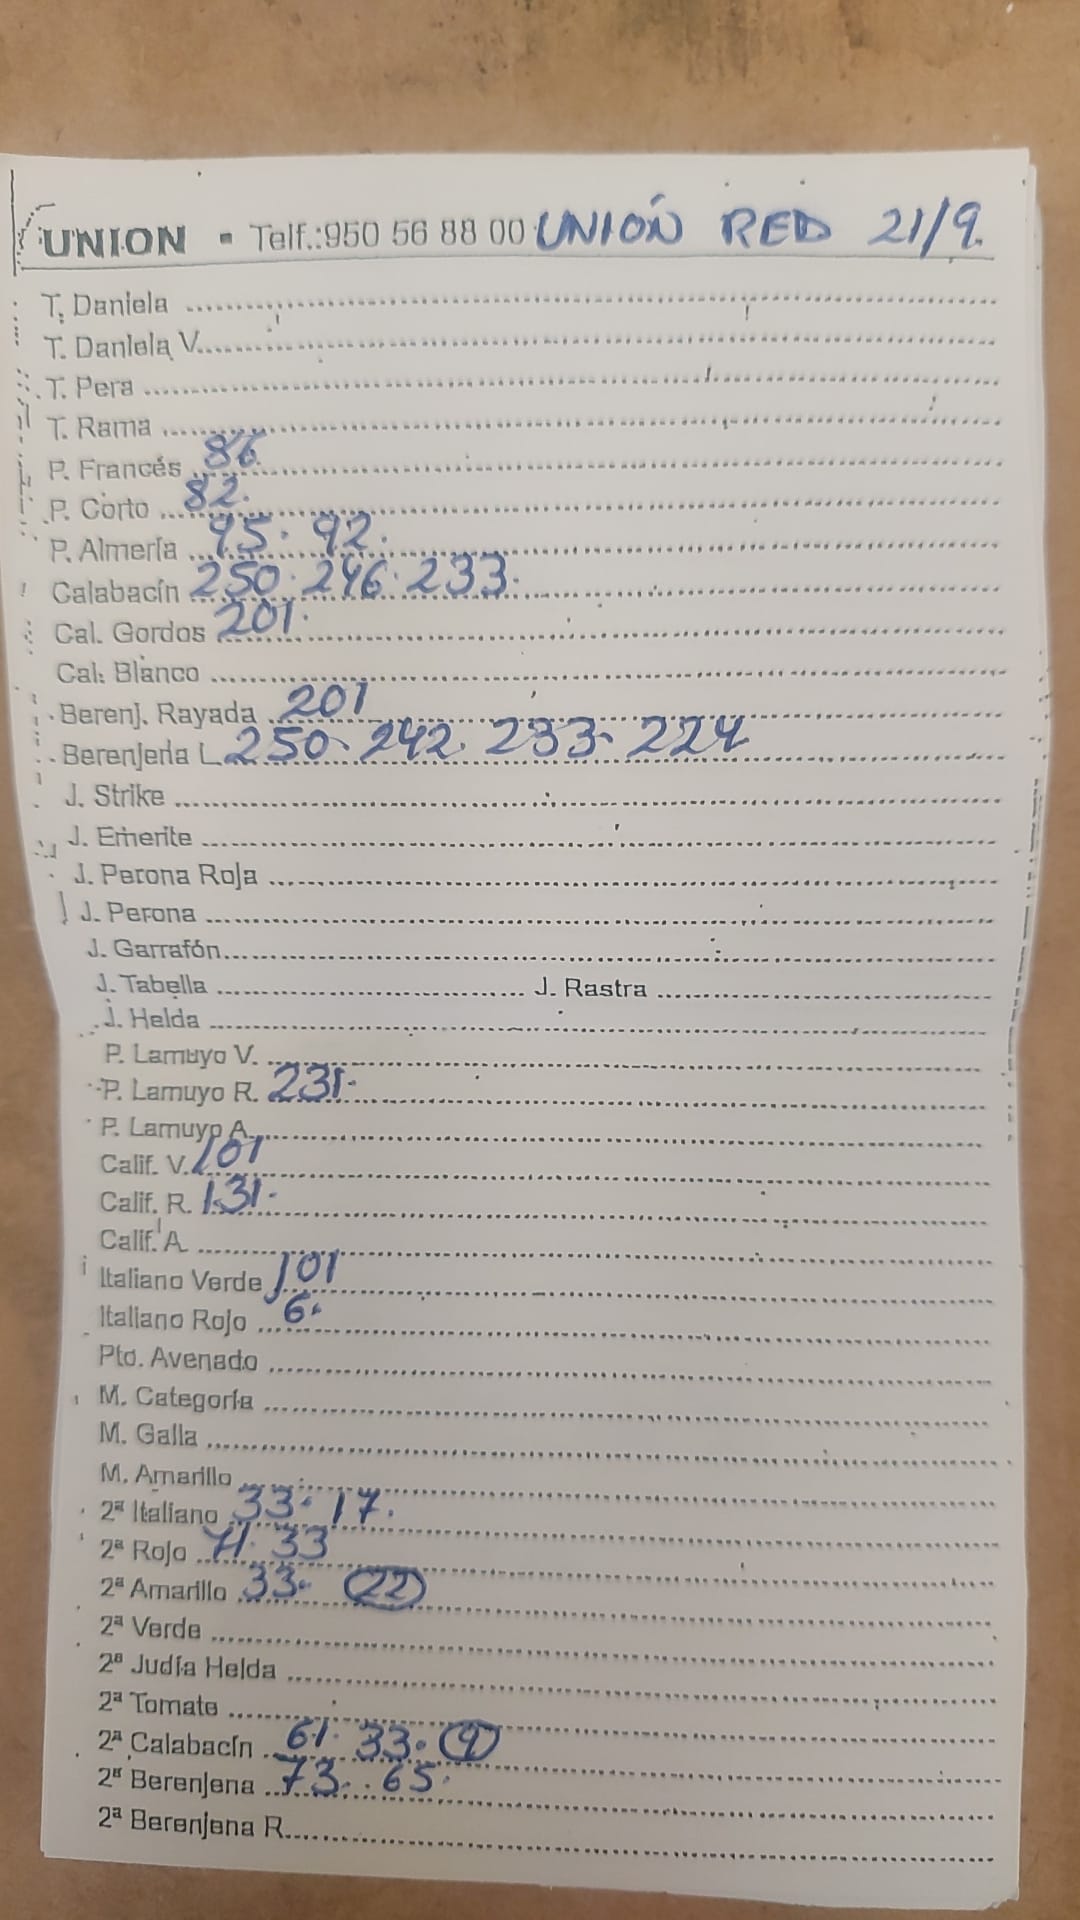 UNION - Telf.:950 56 88 00 UNIÓN RED 21/9.
T. Daniela
T. Daniela V.
T. Pera
T. Rama
P. Francés 86
P. Corto 82.
P. Almería 95. 92.
Calabacín 250. 246. 233.
Cal. Gordos 201.
Cal. Blanco
Berenj. Rayada 201
Berenjena L. 250. 242. 233. 224
J. Strike
J. Emerite
J. Perona Roja
J. Perona
J. Garrafón
J. Tabella J. Rastra
J. Helda
P. Lamuyo V.
P. Lamuyo R. 231.
P. Lamuyo A.
Calif. V. 101
Calif. R. 131.
Calif. A
Italiano Verde 101
Italiano Rojo 6.
Pto. Avenado
M. Categoría
M. Galla
M. Amarillo
2ª Italiano 33. 17.
2ª Rojo 71. 33
2ª Amarillo 33. 22
2ª Verde
2ª Judía Helda
2ª Tomate
2ª Calabacín 61. 33. 9
2ª Berenjena 73. 65.
2ª Berenjena R.